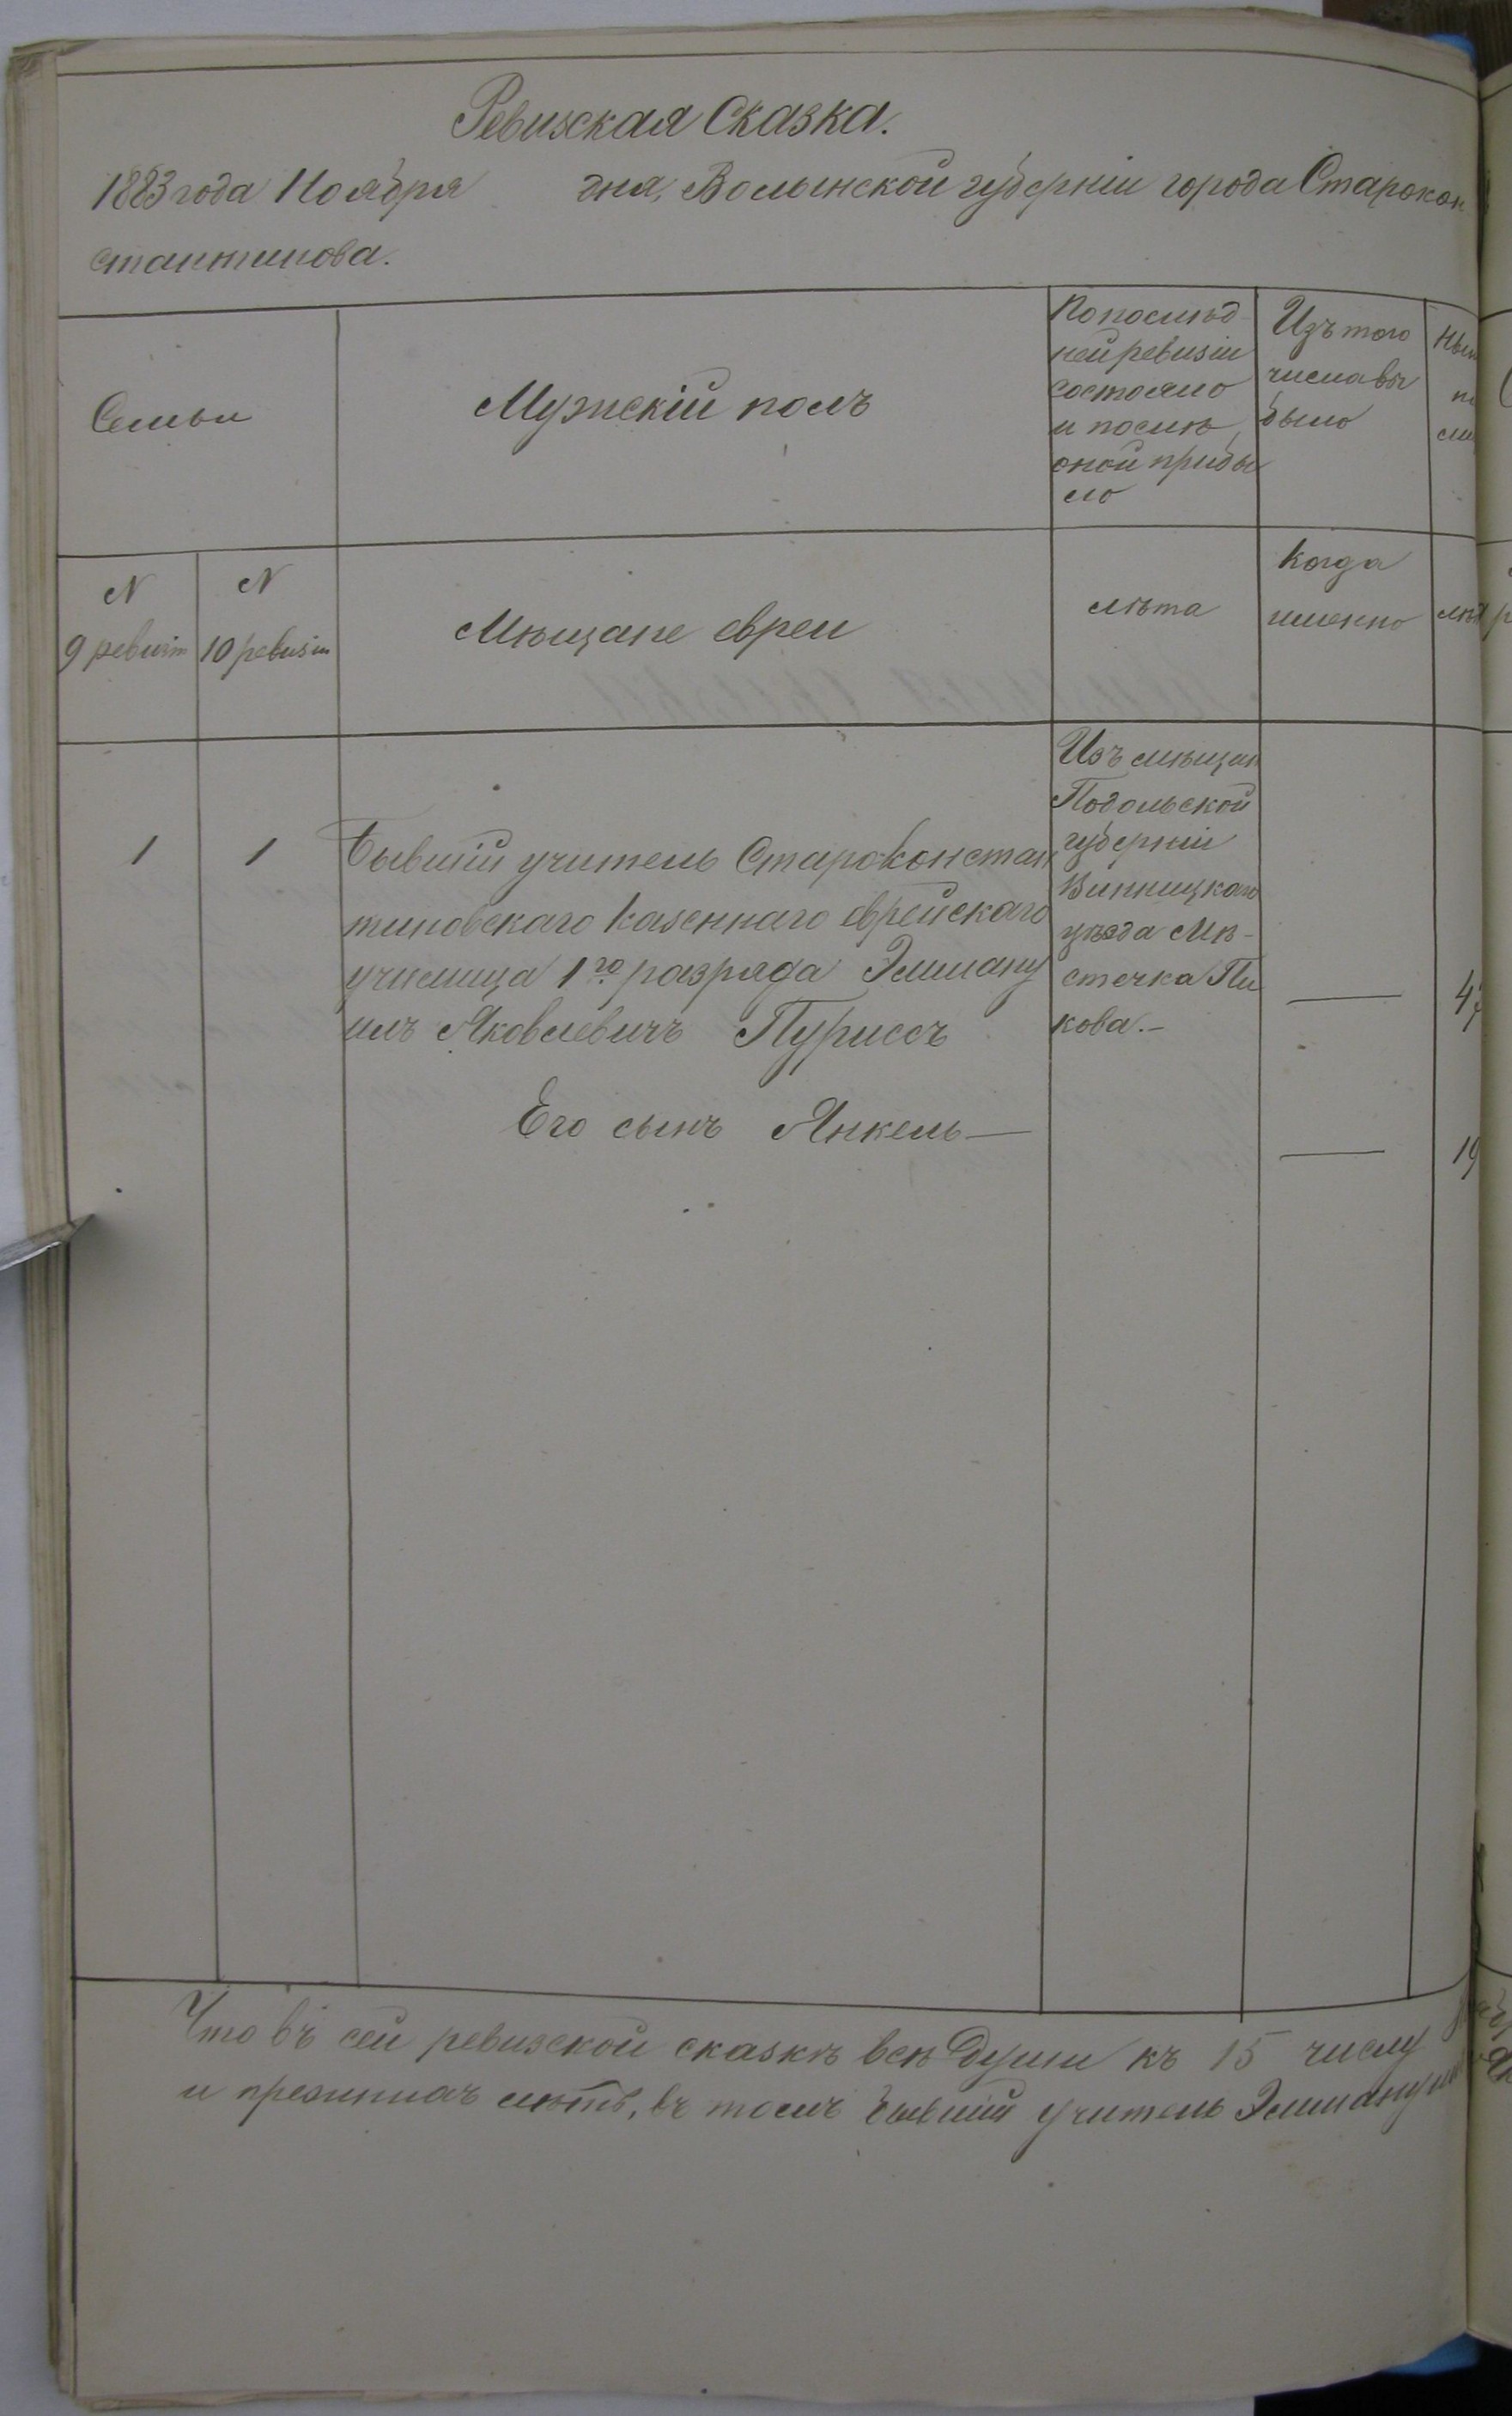 Ревизская Сказка.
1883 года Ноября дня, Волынской губерніи города Старокон
стантинова.
Семьи
Мужскій полъ
По послѣд
ней ревизіи
состояло
и послѣ
оной прибы
ло
Изъ того
числа вы
было
N
9 ревизіи
N
10 ревизіи
Мѣщане евреи
лѣта
Когда
именно
1 1
Бывшій учитель Староконстан
тиновскаго Казеннаго еврейскаго
училища 1го разряда Эмману
илъ Яковлевичъ Пуриссъ
Его сынъ Янкель —
Изъ мѣщан
Подольской
губерніи
Винницкаго
уѣзда Мѣ-
стечка Пи
кова. —
—
—
19
Что въ сей ревизской сказкѣ всѣ души къ 15 числу
и прежнихъ лѣтъ, въ томъ бывшій учитель Эммануи